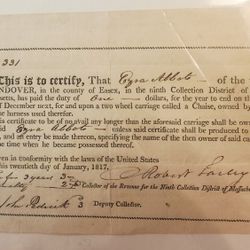 331
This is to certify, That Ezra Abbot of the
NDOVER, in the county of Essex, in the ninth Collection District of
setts, has paid the duty of One dollars, for the year to end on the
December next, for and upon a two wheel carriage called a Chaise, owned by
he harness used therefor.
is certificate to be of no avail longer than the aforesaid carriage shall be owned
id Ezra Abbot unless said certificate shall be produced to
and an entry be made thereon, specifying the name of the then owner of said car
time when he became possessed thereof.
en in conformity with the laws of the United States
his twentieth day of January, 1817.
for 3 years 3
Robert Farley
Collector of the Revenue for the Ninth Collection District of Massachus
John Pedrick Deputy Collector.